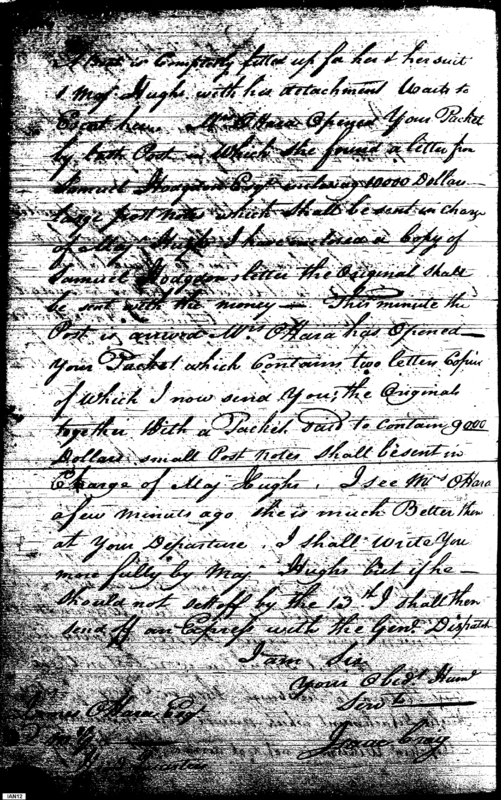 A Boat is Compleatly fitted up for her & her suit
& Maj. Hughs with his detachment Waits to
Escort her. Mrs OHara Opened Your Packet
by last Post in Which she found a letter from
Samuel Hodgdon Esqr inclosing 10000 Dollars
large post notes which Shall be sent in charge
of Maj Hughs I have inclosed a Copy of
Samuel Hodgdons letter the Original Shall
be sent with the money — This minute the
Post is arrived Mrs OHara has Opened
Your Packet which Contains two letters Copies
of Which I now send You; the Originals
together With a Packet said to Contain 9000
Dollars small Post Notes Shall be sent in
Charge of Maj Hughs, I see Mrs OHara
a few minuts ago she is much Better then
at Your Departure, I shall Write You
more fully by Maj Hughs But if he
should not sett off by the 13th I shall then
send off an Express with the Genl Dispatch
I am Sir
Your Obedt Huml
Servt
James OHara Esqr
Isaac Craig
IAN12